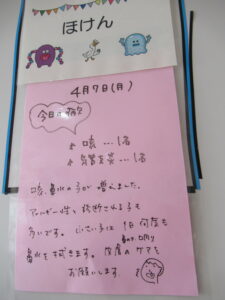 ほけん
4月7日(月)
今日のお休み
咳…1名
胃腸炎…1名
咳、鼻水の子が増えました。
アレルギー性と診断される子も
多いです。小さい子は1日何度も
鼻水を拭きます。皮膚のケアも
お願いします